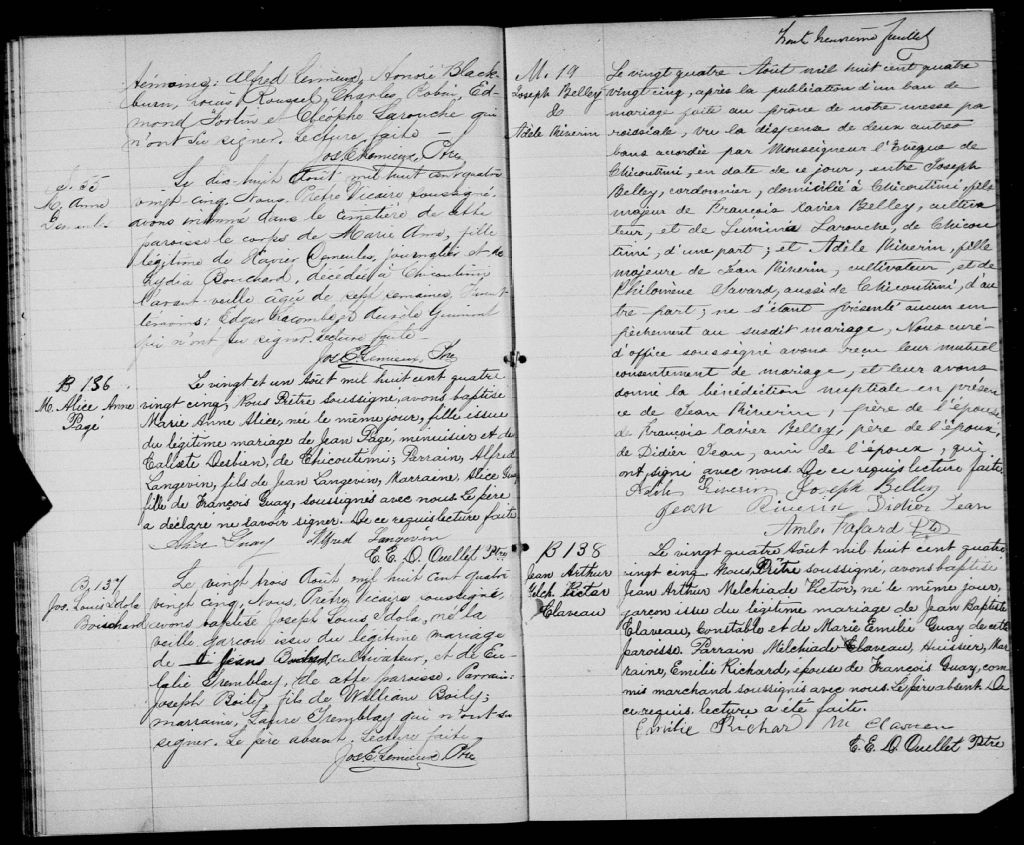 témoins: Alfred Lemieux, Honoré Black-
burn, Louis Roussel, Charles Robin, Ed-
mond Fortin et Cléophe Larouche qui
n'ont su signer. Lecture faite —
Jos E Lemieux, Ptre
S. 55
M. Anne
Le dix-huit Août mil huit cent quatre
vingt cinq, Nous Prêtre Vicaire soussigné,
avons inhumé dans le cimetière de cette
paroisse le corps de Marie Anne, fille
légitime de Xavier journalier et de
Lydia Bouchard, décédée à Chicoutimi
l'avant-veille agée de sept semaines,
témoins: Edgar Lacombe &
qui n'ont su signer. Lecture faite —
Jos E Lemieux, Ptre
B 136
M. Alice Anne
Pagé
Le vingt et un Août mil huit cent quatre
vingt cinq, Nous Prêtre soussigné, avons baptisé
Marie Anne Alice, née le même jour, fille issue
du légitime mariage de Jean Pagé, menuisier et de
Caliste Desbien, de Chicoutimi; Parrain, Alfred
Langevin, fils de Jean Langevin, Marraine, Alice Guay
fille de François Guay, soussignés avec nous. Le père
a déclaré ne savoir signer. De ce requis lecture faite
Alice Guay Alfred Langevin
E. E. D. Ouellet Ptre
B. 137
Jos. Louis Idola
Bouchard
Le vingt trois Août mil huit cent quatre
vingt cinq, Nous, Prêtre Vicaire soussigné,
avons baptisé Joseph Louis Idola, né la
veille, garçon issu du légitime mariage
de Jean Bouchard cultivateur, et de Eu-
lalie Tremblay, de cette paroisse, Parrain:
Joseph Boily, fils de William Boily;
marraine, Laure Tremblay qui n'ont su
signer. Le père absent. Lecture faite
Jos E Lemieux Ptre
Trente neuvième feuillet
M. 19
Joseph Belley
&
Adèle Riverin
Le vingt quatre Août mil huit cent quatre
vingt cinq, après la publication d'un ban de
mariage faite au prône de notre messe pa
roissiale, vu la dispense de deux autres
bans accordée par Monseigneur l'Evêque de
Chicoutimi, en date de ce jour, entre Joseph
Belley, cordonnier, domicilié à Chicoutimi, fils
majeur de François Xavier Belley, cultiva
teur, et de Lumina Larouche, de Chicou
timi, d'une part; et Adèle Riverin, fille
majeure de Jean Riverin, cultivateur, et de
Philomène Savard, aussi de Chicoutimi, d'au
tre part; ne s'étant présenté aucun em
pêchement au susdit mariage, Nous curé
d'office soussigné avons reçu leur mutuel
consentement de mariage, et leur avons
donné la bénédiction nuptiale en présen
ce de Jean Riverin, père de l'épouse
de François Xavier Belley, père de l'époux,
de Didier Jean, ami de l'époux, qui
ont signé avec nous. De ce requis lecture faite
Adèle Riverin Joseph Belley
Jean Riverin Didier Jean
Amb. Fafard Ptre
B 138
Jean Arthur
Melch. Victor
Claveau
Le vingt quatre Août mil huit cent quatre
vingt cinq Nous, Prêtre soussigné, avons baptisé
Jean Arthur Melchiade Victor, né le même jour,
garçon issu du légitime mariage de Jean Baptiste
Claveau, Constable et de Marie Emilie Guay de cette
paroisse. Parrain Melchiade Claveau, Huissier, Mar
raine, Emilie Richard, épouse de François Guay, com
mis marchand soussignés avec nous. Le père absent. De
ce requis lecture a été faite.
Emilie Richar M Claveau
E. E. D. Ouellet Ptre